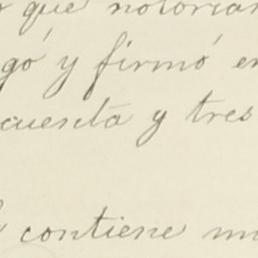 que notoriam
gó y firmó en
cuenta y tres
contiene m